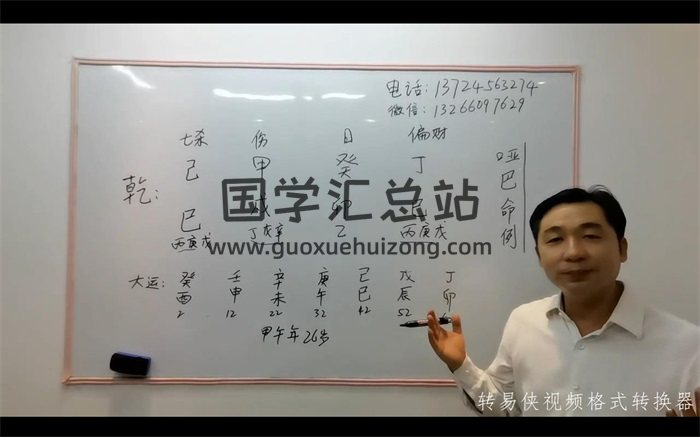 电话:13724563274
微信:13266097629
七杀 伤 日 偏财
乾: 己 甲 癸 丁
巳 戌 卯 巳
丙庚戊 丁戊辛 乙 丙庚戊
哑巴命例
国学汇总站
www.guoxuehuizong.com
大运: 癸酉 壬申 辛未 庚午 己巳 戊辰 丁卯
2 12 22 32 42 52
甲午年26岁
转易侠视频格式转换器